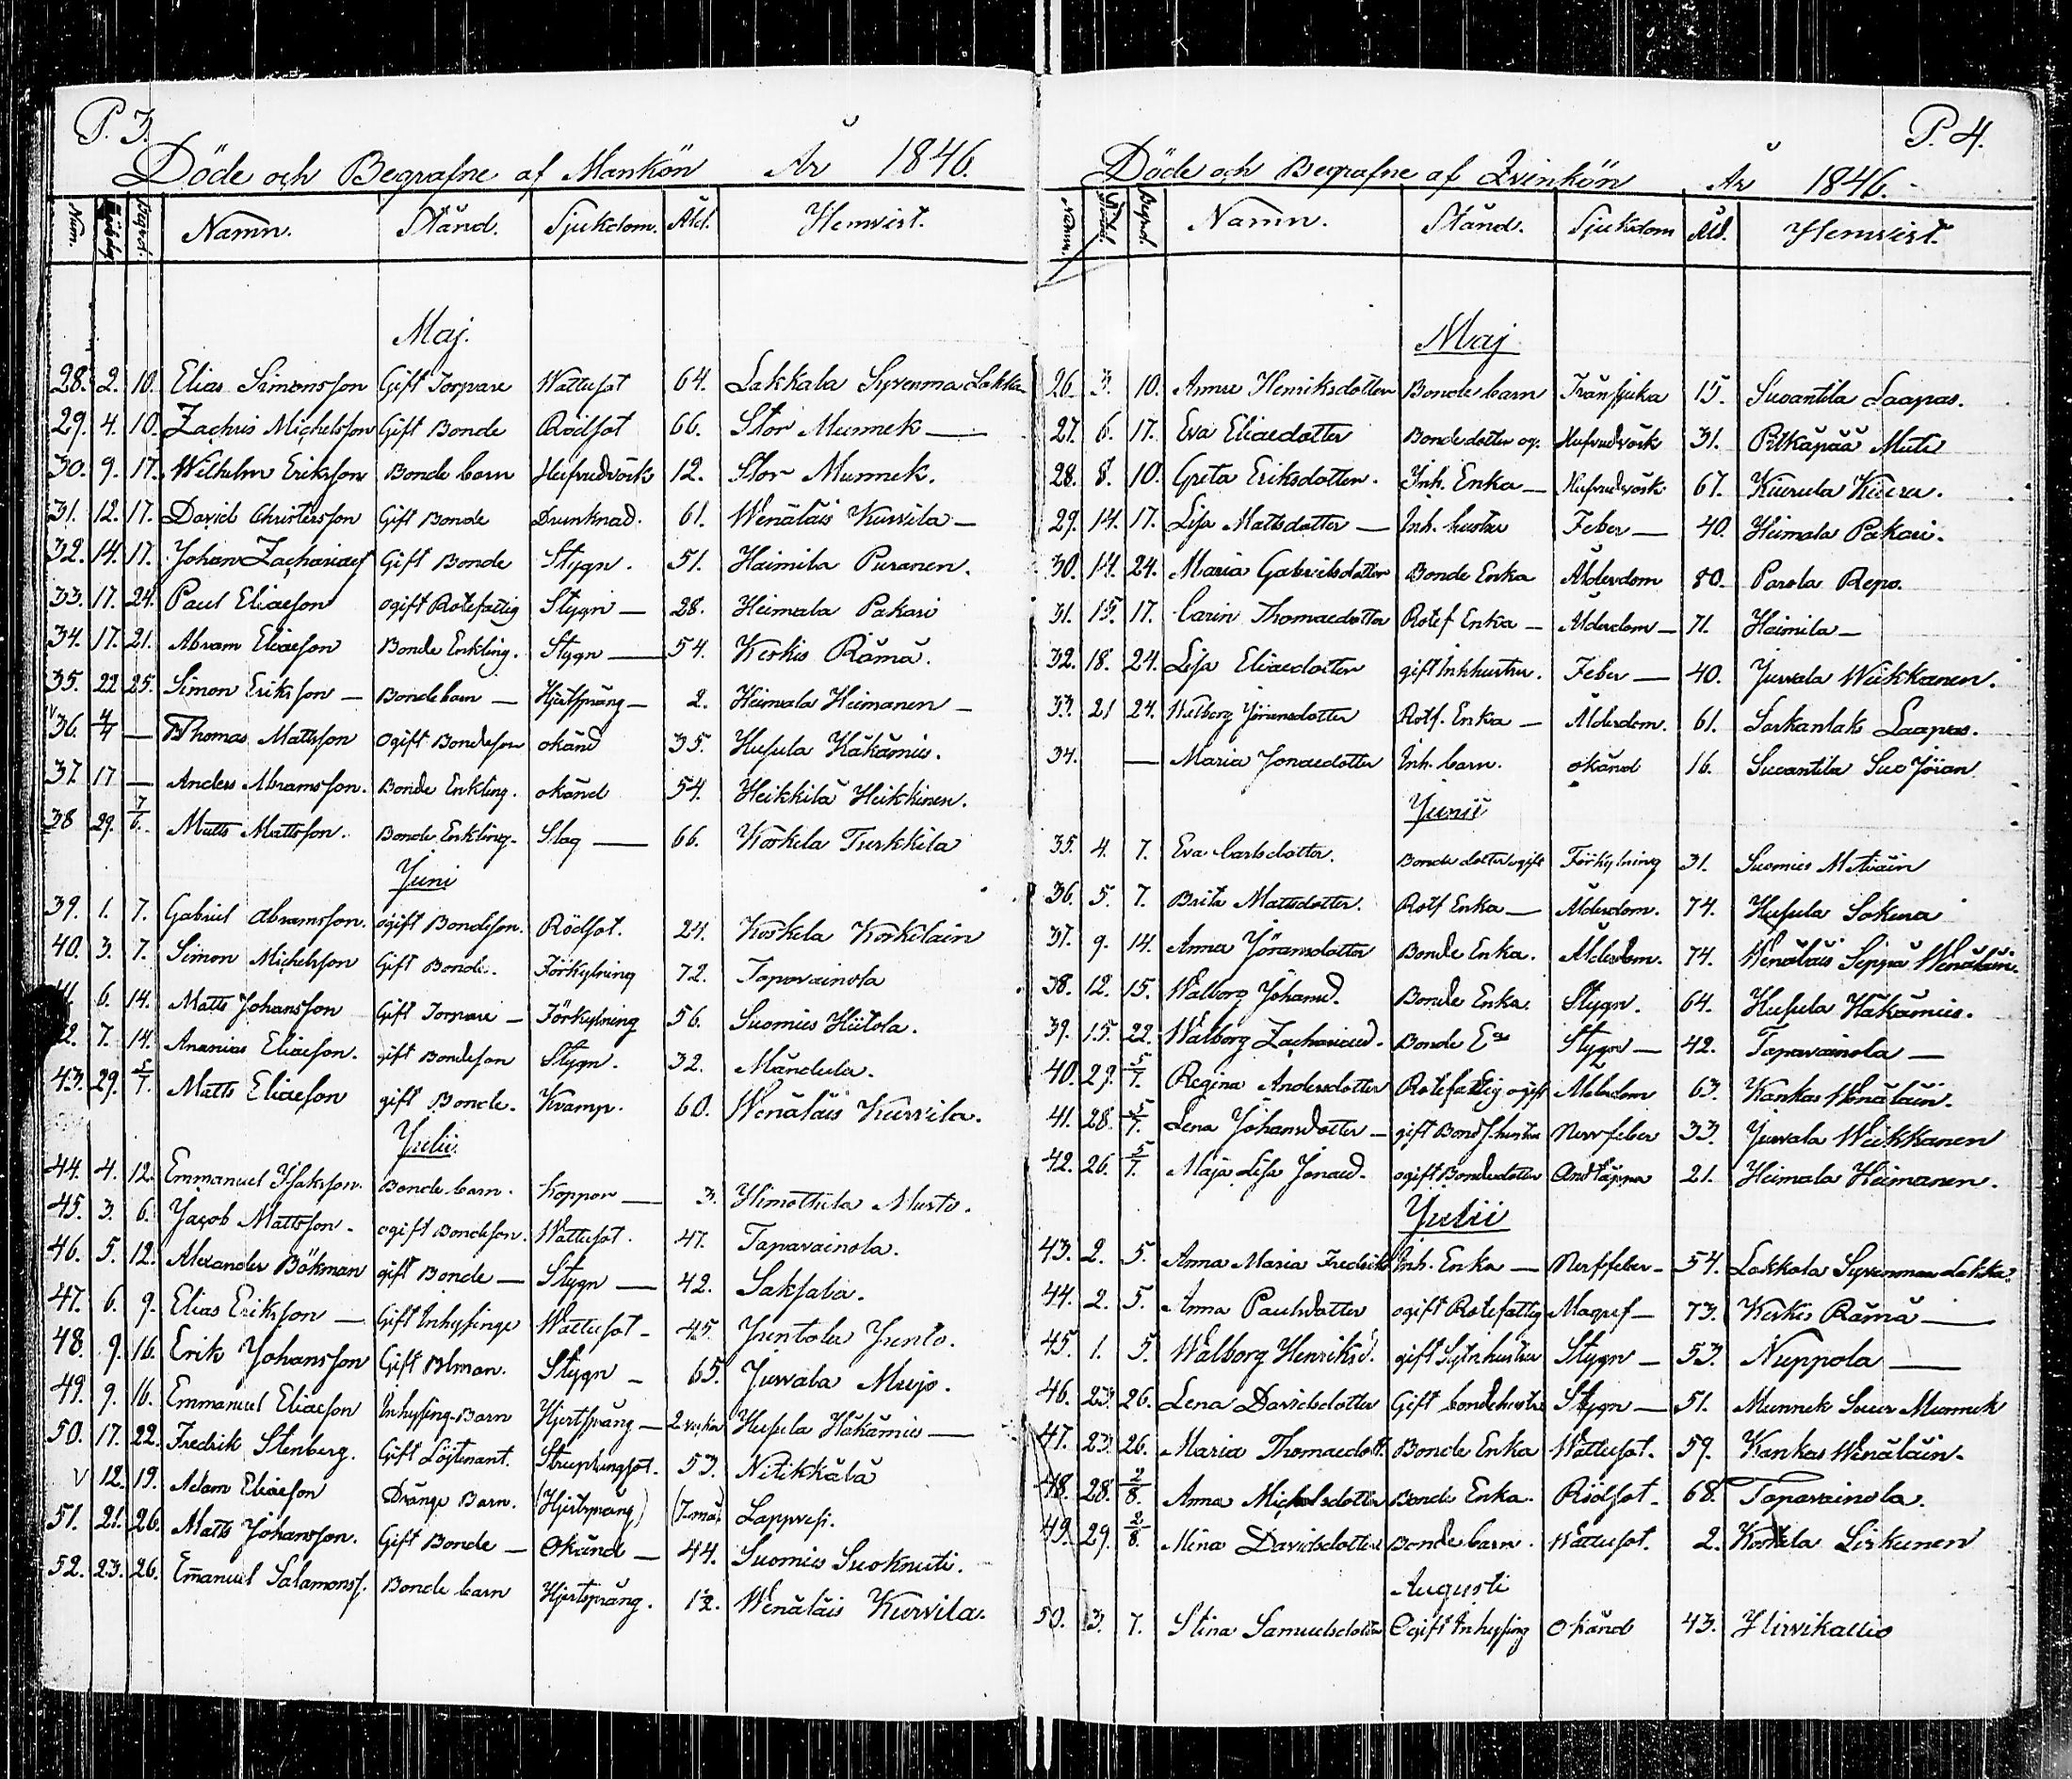 P. 3.
Döde och Begrafne af Mankön År 1846.
Num. Begrafd. Namn. Stånd. Sjukdom. Åld. Hemvist.
Maj.
28. 2. 10. Elias Simonsson Gift Torpare Wattusot 64. Lakkala Syvenma Lakka
29. 4. 10. Zachris Michelsson Gift Bonde Rödsot 66. Stor Munnek —
30. 9. 17. Wilhelm Eriksson Bonde barn Hufvudvärk 12. Stor Munnek.
31. 12. 17. David Christersson Gift Bonde Drunknad. 61. Wenäläis Kurvila —
32. 14. 17. Johan Zachariaes Gift Bonde Stygn. 51. Haimila Puranen.
33. 17. 24. Paul Eliaeson ogift Rotefattig Stygn — 28. Heimala Pakari
34. 17. 21. Abram Eliaeson Bonde Enkling. Stygn — 54. Kerkis Rämä.
35. 22 25. Simon Eriksson — Bondebarn — Hjertsprång — 2. Heimala Heimanen —
36. 4/4 — Thomas Mattsson Ogift Bondeson okänd 35. Husula Häkämies.
37. 17 — Anders Abramsson. Bonde Enkling. okänd 54. Heikkilä Heikkinen.
38 29. 7/6. Matts Mattsson. Bonde Enkling. Slag — 66. Korkela Turkkila
Juni
39. 1. 7. Gabriel Abramsson. ogift Bondeson. Rödsot. 24. Korkela Korkelain
40. 3. 7. Simon Michelsson Gift Bonde. Förkylning 72. Tapavainola
6. 14. Matts Johansson Gift Torpare — Förkylning 56. Suomies Hiitola.
7. 14. Ananias Eliaeson. gift Bondeson Stygn. 32. Mändula.
43. 29. 5/7. Matts Eliaeson gift Bonde. Kramp. 60. Wenäläis Kurvila.
Julii
44. 4. 12. Emmanuel Isaksson. Bonde barn. Koppor — 3. Himottula Musto.
45. 3. 6. Jacob Mattsson. ogift Bondeson. Wattusot. 47. Tapavainola.
46. 5. 12. Alexander Bökman gift Bonde — Stygn — 42. Saksala.
47. 6. 9. Elias Eriksson — Gift Inhysinge Wattusot — 45. Juntola Junto.
48. 9. 16. Erik Johansson Gift Blman. Stygn — 65. Jurvala Mujo.
49. 9. 16. Emmanuel Eliaeson Inhysing-Barn Hjertsprång — 2 veckor Husula Häkämies —
50. 17. 22. Fredrik Stenberg. Gift Löjtenant. 53. Nitikkälä
V 12. 19. Adam Eliaeson Dränge Barn. (Hjertsprång) Lappvesi.
51. 21. 26. Matts Johansson. Gift Bonde — Okänd — 44. Suomies Suoknuti.
52. 23. 26. Emanuel Salamonss. Bonde barn Hjertsprång. 12. Wenäläis Kurvila.
P. 4.
Döde och Begrafne af Qvinkön År 1846.
Num. Begraf. Namn. Stånd. Sjukdom Åld. Hemvist.
Maj
26. 3. 10. Anna Henriksdotter Bonde barn Tränsjuka 15. Suoantila Laapas.
27. 6. 17. Eva Eliaedotter Bondedotter og. Hufvudvärk 31. Pitkäpää Muti
28. 8. 10. Greta Eriksdotter. Inh. Enka — Hufvudvärk 67. Kiurula Kiuru.
29. 14. 17. Lisa Mattsdotter — Inh. hustru Feber — 40. Heimala Pakari.
30. 14. 24. Maria Gabrielsdotter Bonde Enka Ålderdom 80. Parola Repo.
31. 15. 17. Carin Thomaedotter Rotef Enka — Ålderdom — 71. Haimila —
32. 18. 24. Lisa Eliaedotter gift Inhhustru. Feber — 40. Jurvala Wiikkanen.
33. 21 24. Walborg Jöransdotter Rotf. Enka — Ålderdom. 61. Sarkanlaks Laapas.
34. — Maria Jonaedotter Inh. barn. okänd 16. Suoantila Suo Jöran
Junii
35. 4. 7. Eva Carlsdotter. Bonde dotter ogift Förkylning 31. Suomies Matiain
36. 5. 7. Brita Mattsdotter. Rotf Enka — Ålderdom. 74. Husula Sokura
37. 9. 14. Anna Jöransdotter Bonde Enka. Ålderdom. 74. Wenäläis Seppä Wenäläin.
38. 12. 15. Walborg Johansd. Bonde Enka. Stygn. 64. Husula Häkämies.
39. 15. 22. Walborg Zachariaed. Bonde Ea Stygn — 42. Tapavainola —
40. 29. 5/7. Regina Andersdotter Rotefattig ogift Ålderdom 63. Kankas Wenäläin.
41. 28. 5/7. Lena Johansdotter — gift Bonds.hustru Nervfeber 33. Jurvala Wiikkanen
42. 26. 5/7. Maja Lisa Jonaed. ogift Bondedotter Andtäppa 21. Heimala Heimanen.
Julii
43. 2. 5. Anna Maria Fredriks Inh. Enka — Nervfeber — 54. Lakkala Syvenmaa Lakka.
44. 2. 5. Anna Paulsdotter ogift Rotefattig Magref — 73. Kerkis Rämä —
45. 1. 5. Walborg Henriksd. gift Sytnhustru Stygn — 53. Nuppola —
46. 23. 26. Lena Davidsdotter Gift bondehustru Stygn — 51. Munnek Suur Munnuk
47. 23. 26. Maria Thomaedott. Bonde Enka Wattusot. 59. Kankas Wenäläin.
48. 28. 2/8. Anna Michelsdotter Bonde Enka. Rödsot — 68. Tapavainola.
49. 29. 2/8. Mina Davidsdotter Bonde barn. Wattusot. 2. Korkela Sirkunen
Augusti
50. 3. 7. Stina Samuelsdotter Ogift Inhysing Okänd 43. Hirvikallio